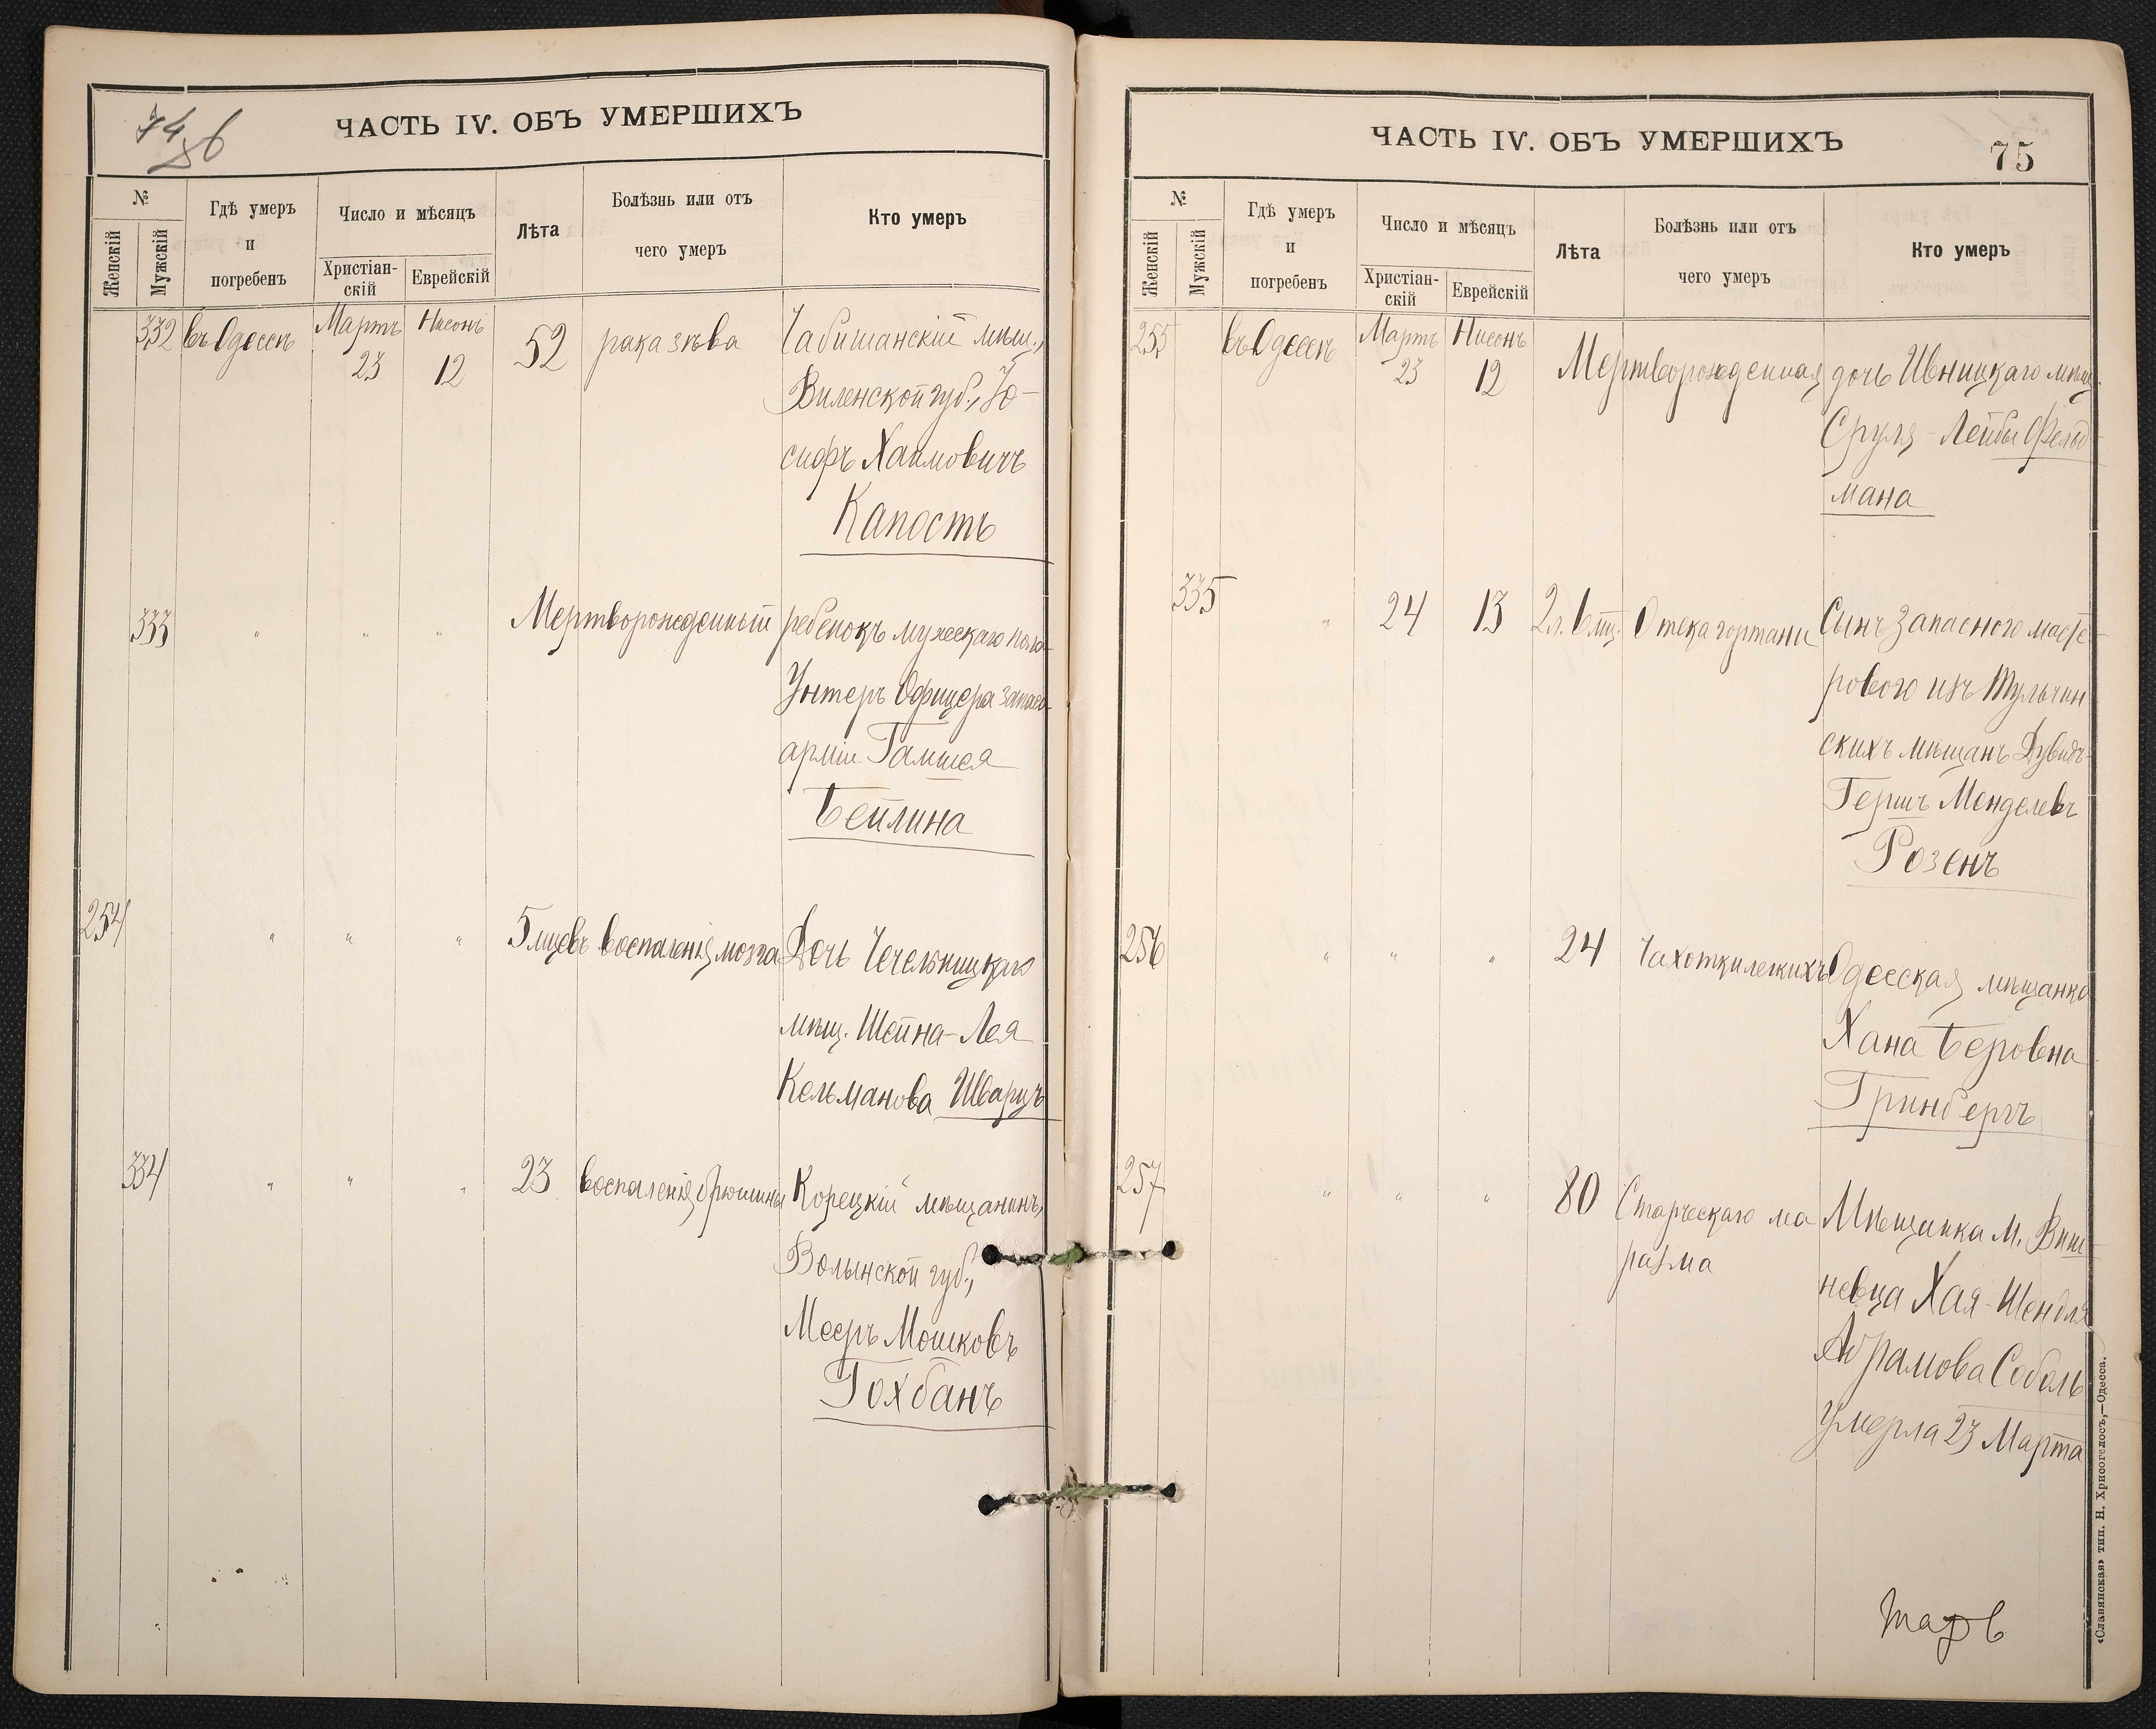 74 об
ЧАСТЬ IV. ОБЪ УМЕРШИХЪ
№
Женскій
Мужскій
Гдѣ умеръ
и
погребенъ
Число и мѣсяцъ
Христіан-
скій
Еврейскій
Лѣта
Болѣзнь или отъ
чего умеръ
Кто умеръ
332 въ Одессѣ Мартъ 23 Нисонъ 12 52 рака зѣва Чабишанскій мѣщ.,
Виленской губ., Іо-
сифъ Хаимовичъ
Капостъ
333 " " " Мертворожденный ребенокъ мужескаго пола
Унтеръ Офицера запаса
арміи Гамшея
Бейлина
254 " " " 5 мцевъ воспаленія мозга Дочь Чечельницкаго
мѣщ. Шейна-Лея
Кельманова Шварцъ
334 " " " 23 воспаленія брюшины Корецкій мѣщанинъ,
Волынской губ.,
Мееръ Мошковъ
Гохбанъ
ЧАСТЬ IV. ОБЪ УМЕРШИХЪ
75
№
Женскій
Мужскій
Гдѣ умеръ
и
погребенъ
Число и мѣсяцъ
Христіан-
скій
Еврейскій
Лѣта
Болѣзнь или отъ
чего умеръ
Кто умеръ
255 въ Одессѣ Мартъ 23 Нисонъ 12 Мертворожденная дочь Ивницкаго мѣщ.
Сруля-Лейбы Фельд-
мана
335 " 24 13 2 л. 6 мц. Отека гортани Сынъ запасного масте-
рового изъ Тульчин
скихъ мѣщанъ Дувидъ-
Гершъ Менделевъ
Розенъ
256 " " " 24 Чахотки легкихъ Одесская мѣщанка
Хана Беровна
Гринбергъ
257 " " " 80 Старческаго ма Мѣщанка м. Виш-
разма
невца Хая-Шендля
Абрамова Соболь
умерла 23 Марта
«Славянская» тип. Н. Хрисогелосъ,—Одесса.